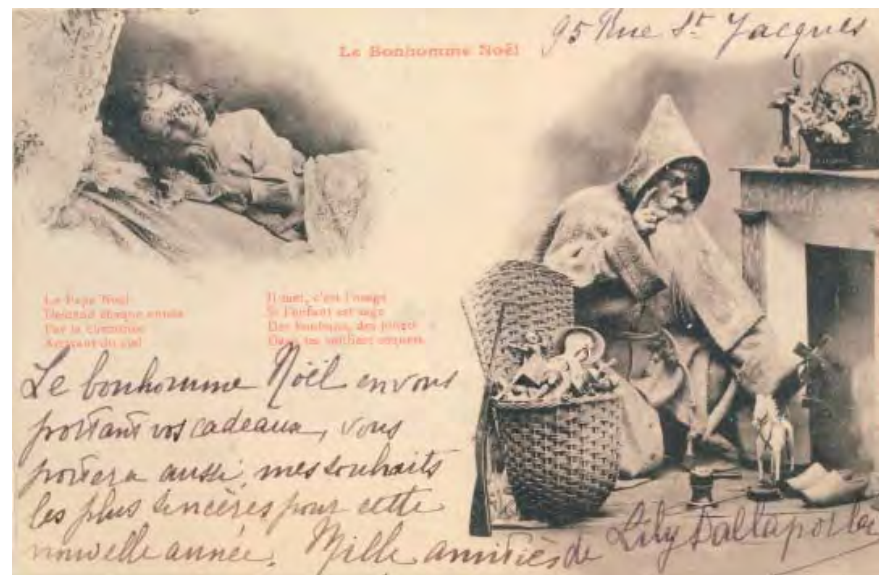 Le Bonhomme Noël
95 Rue St Jacques
Le Papa Noël
Descend chaque année
Par la cheminée
Arrivant du ciel
Il met, c'est l'usage
Si l'enfant est sage
Des bonbons, des joujoux
Dans les souliers
Le bonhomme Noël en vous
portant vos cadeaux, vous
portera aussi mes souhaits
les plus sincères pour cette
nouvelle année. Mille amitiés de Lily